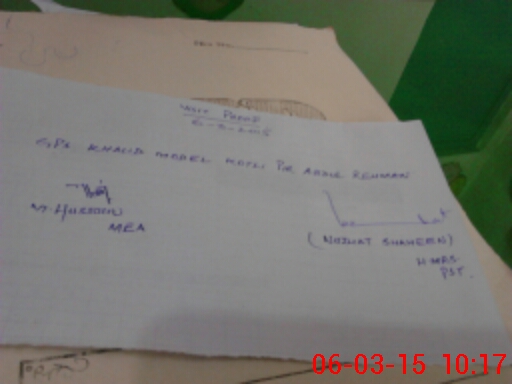 VISIT PROOF
6-3-2015
GPS KHALID MODEL KOTLI PIR ABDUR REHMAN
M. Hussain
MEA
(NUZHAT SHAHEEN)
H-MRS
PST.
06-03-15 10:17